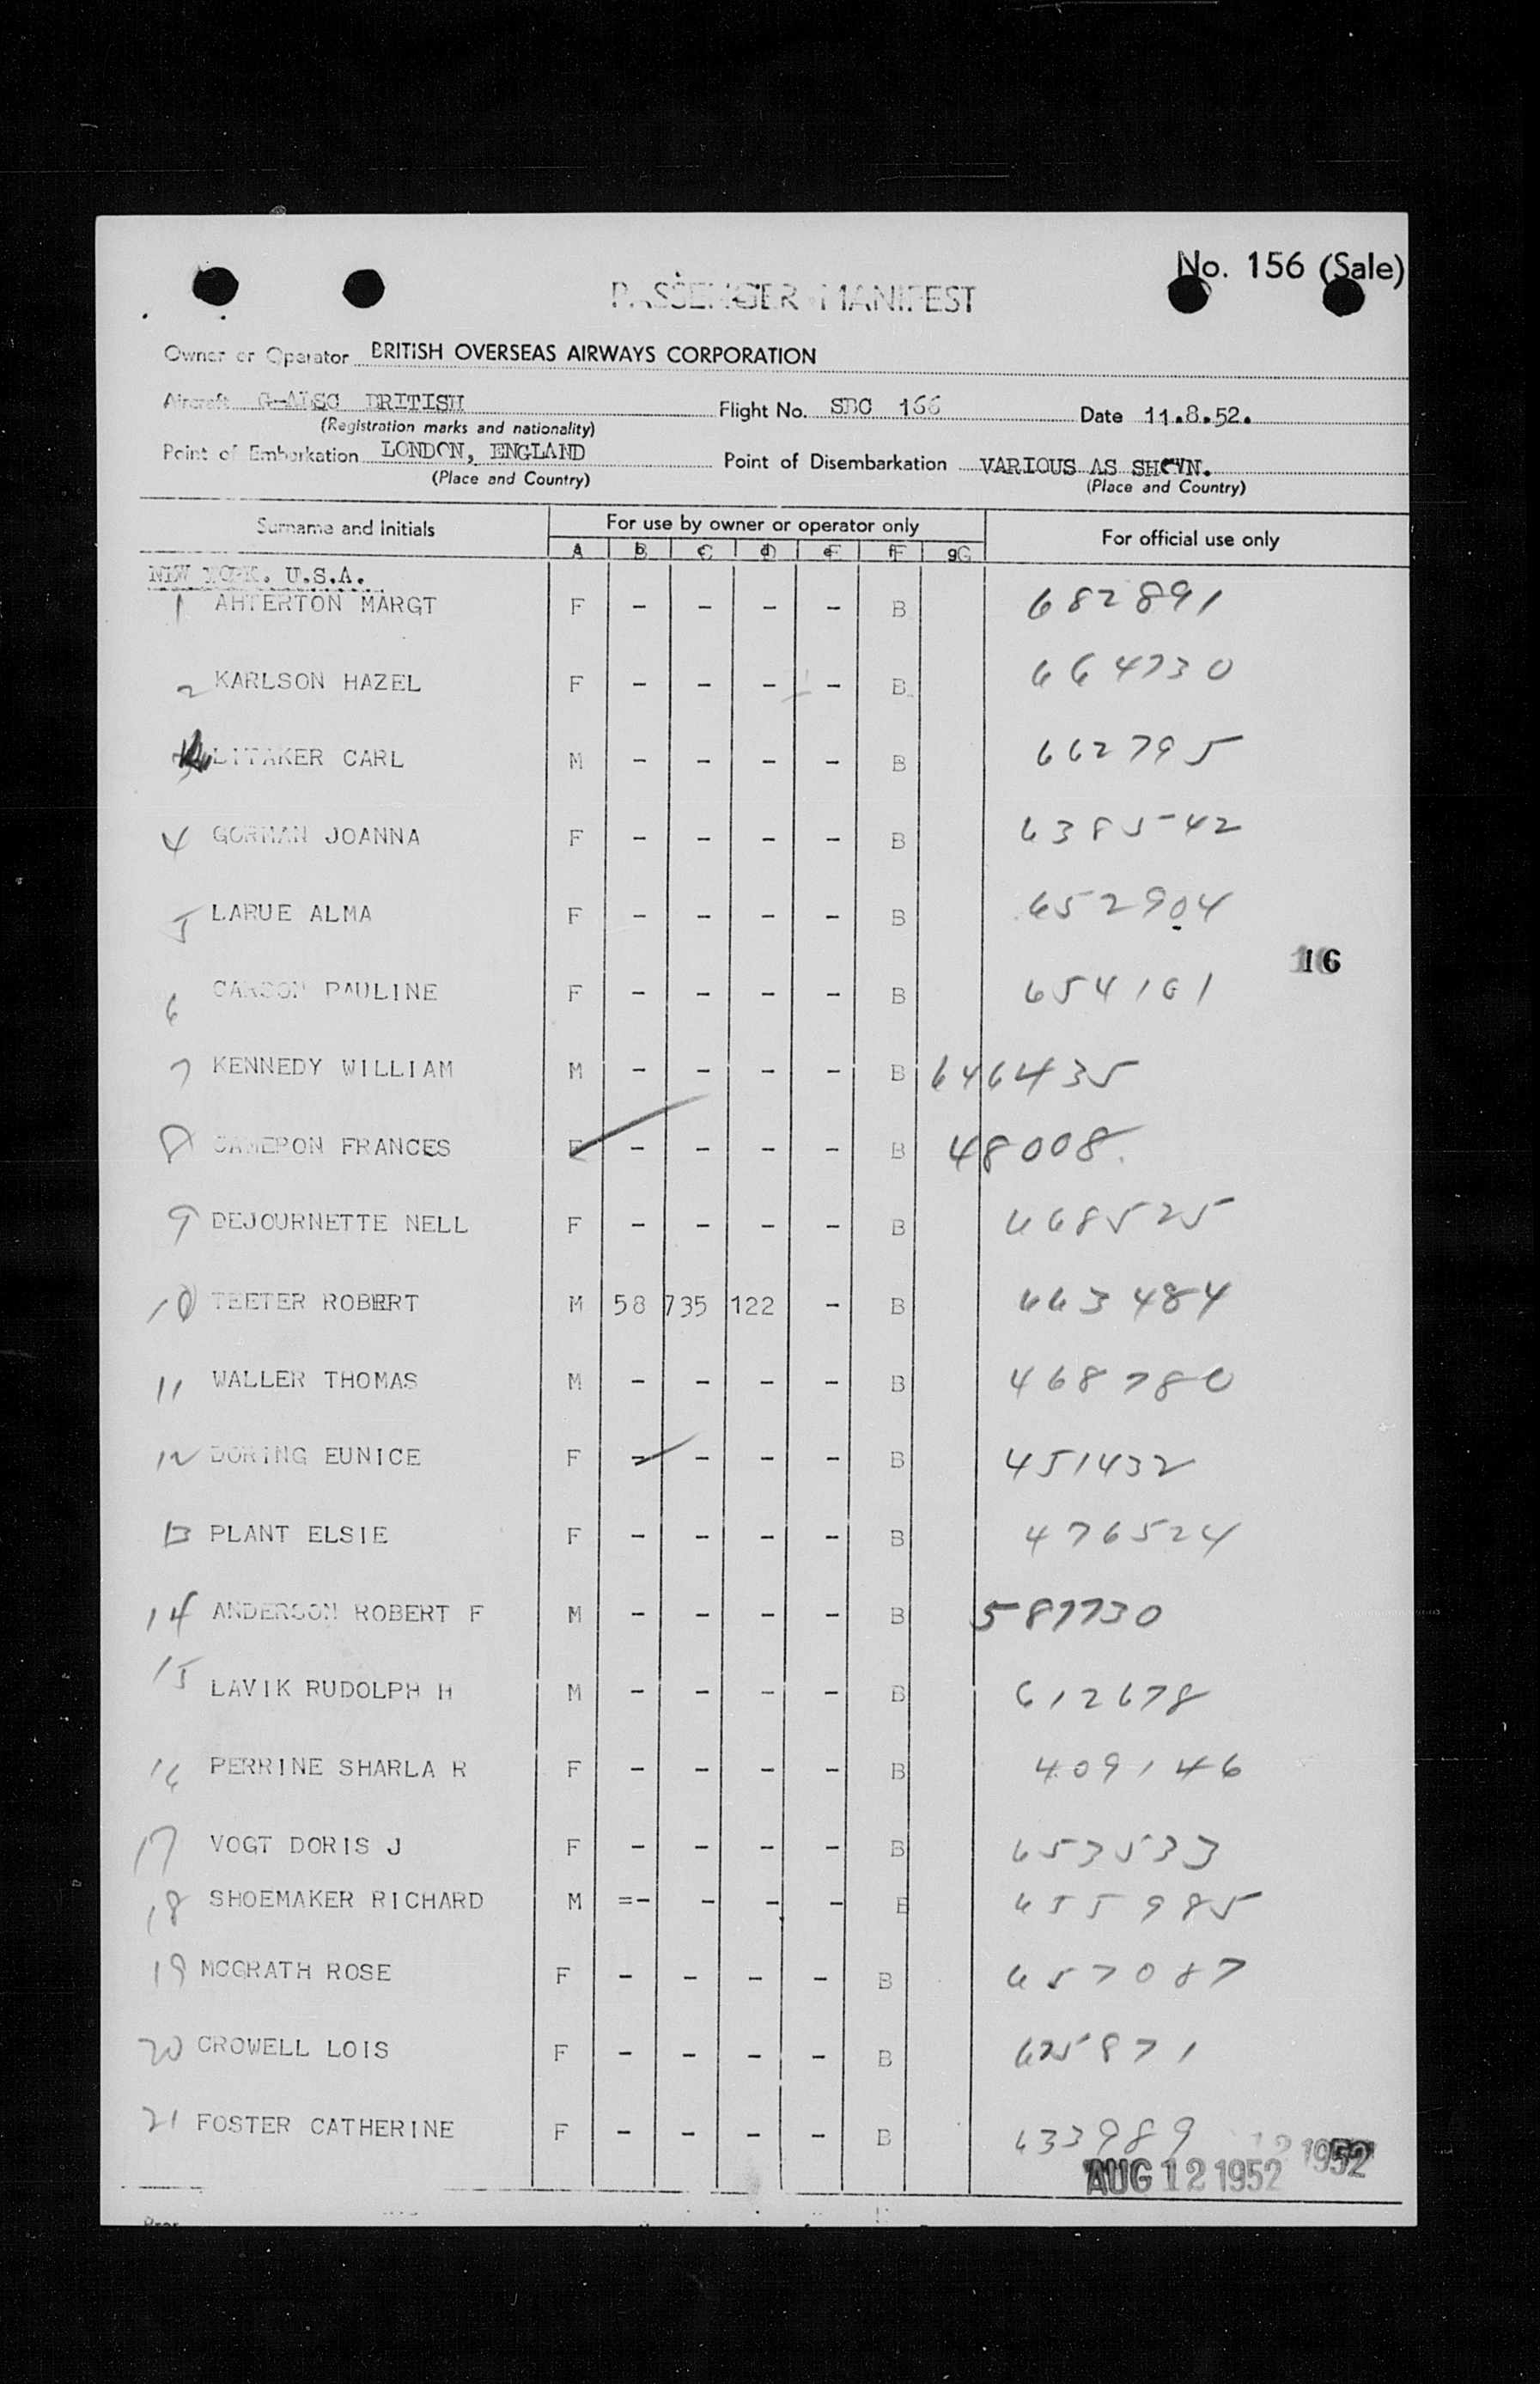 No. 156 (Sale)
PASSENGER MANIFEST
Owner or Operator BRITISH OVERSEAS AIRWAYS CORPORATION
Aircraft G-ALSC BRITISH Flight No. SBC 166 Date 11.8.52.
(Registration marks and nationality)
Point of Embarkation LONDON, ENGLAND Point of Disembarkation VARIOUS AS SHOWN.
(Place and Country) (Place and Country)
Surname and Initials For use by owner or operator only For official use only
A B C D E F G
NEW YORK. U.S.A.
1 AHTERTON MARGT F - - - - B 682891
2 KARLSON HAZEL F - - - - B 664730
LITAKER CARL M - - - - B 662795
4 GORMAN JOANNA F - - - - B 638542
5 LARUE ALMA F - - - - B 652904
16
6 CARSON PAULINE F - - - - B 654161
7 KENNEDY WILLIAM M - - - - B 646435
8 CAMERON FRANCES F - - - - B 48008
9 DEJOURNETTE NELL F - - - - B 668525
10 TEETER ROBERT M 58 735 122 - B 663484
11 WALLER THOMAS M - - - - B 468780
12 DORING EUNICE F - - - - B 451432
13 PLANT ELSIE F - - - - B 476524
14 ANDERSON ROBERT F M - - - - B 587730
15 LAVIK RUDOLPH H M - - - - B 612678
16 PERRINE SHARLA R F - - - - B 409146
17 VOGT DORIS J F - - - - B 653533
18 SHOEMAKER RICHARD M =- - - - B 655985
19 MCGRATH ROSE F - - - - B 657087
20 CROWELL LOIS F - - - - B 625871
21 FOSTER CATHERINE F - - - - B 633989
12 1952
AUG 12 1952